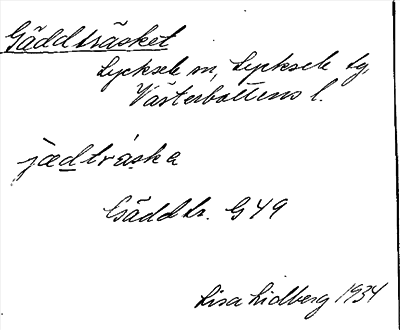 Gäddträsket
Lycksele sn, Lycksele tg,
Västerbottens l.
jædträska
Gäddtr. G 49
Lisa Lidberg 1934